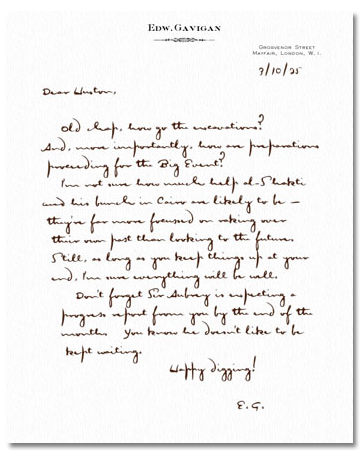 Edw. Gavigan
Grosvenor Street
Mayfair, London, W. 1.
9/10/25
Dear Huston,
Old chap, how go the excavations?
And, more importantly, how are preparations
proceeding for the Big Event?
I'm not sure how much help al-Shakti
and his bunch in Cairo are likely to be –
they're far more focused on raking over
their own past than looking to the future.
Still, as long as you keep things up at your
end, I'm sure everything will be well.
Don't forget Sir Aubrey is expecting a
progress report from you by the end of the
month. You know he doesn't like to be
kept waiting.
Happy digging!
E. G.